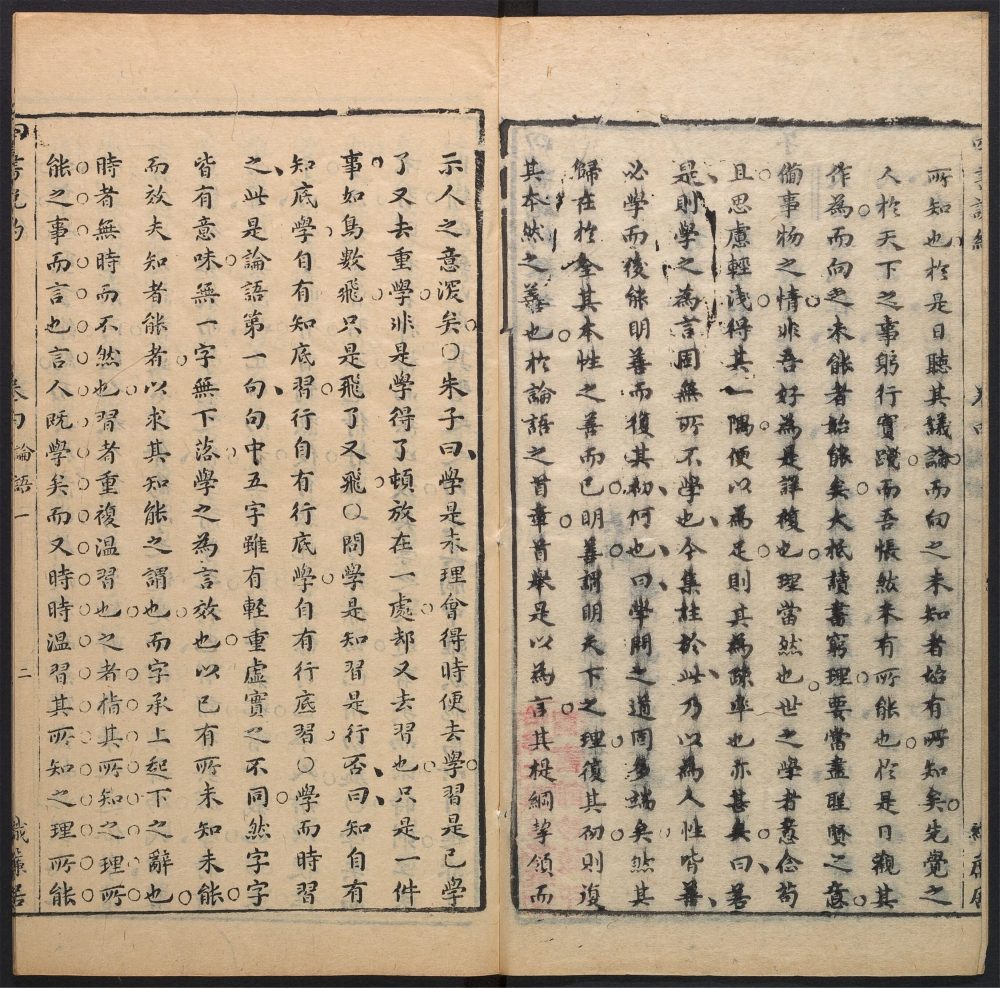 所知也於是日聽其議論而向之未知者始有所知矣先覺之
人於天下之事躬行實踐而吾悵然未有所能也於是日觀其
作為而向之未能者始能矣大抵讀書窮理要當盡聖賢之意
備事物之情非吾好為是詳複也理當然也世之學者意念苟
且思慮輕淺得其一隅便以為足則其為踈率也亦甚矣曰善
是則學之為言固無所不學也今集註於此乃以為人性皆善
必學而後能明善而復其初何也曰學問之道固多端矣然其
歸在於全其本性之善而已明善謂明天下之理復其初則復
其本然之善也於論語之首章首舉是以為言其提綱挈領而
示人之意深矣○朱子曰學是未理會得時便去學習是已學
了又去重學非是學得了頓放在一處却又去習也只是一件
事如鳥數飛只是飛了又飛○問學是知習是行否曰知自有
知底學自有知底習行自有行底學自有行底習○學而時習
之此是論語第一句句中五字雖有輕重虛實之不同然字字
皆有意味無一字無下落學之為言效也以己有所未知未能
而效夫知者能者以求其知能之謂也而字承上起下之辭也
時者無時而不然也習者重複溫習也之者指其所知之理所
能之事而言也言人既學矣而又時時溫習其所知之理所能
四書
論語一
二
織簾居